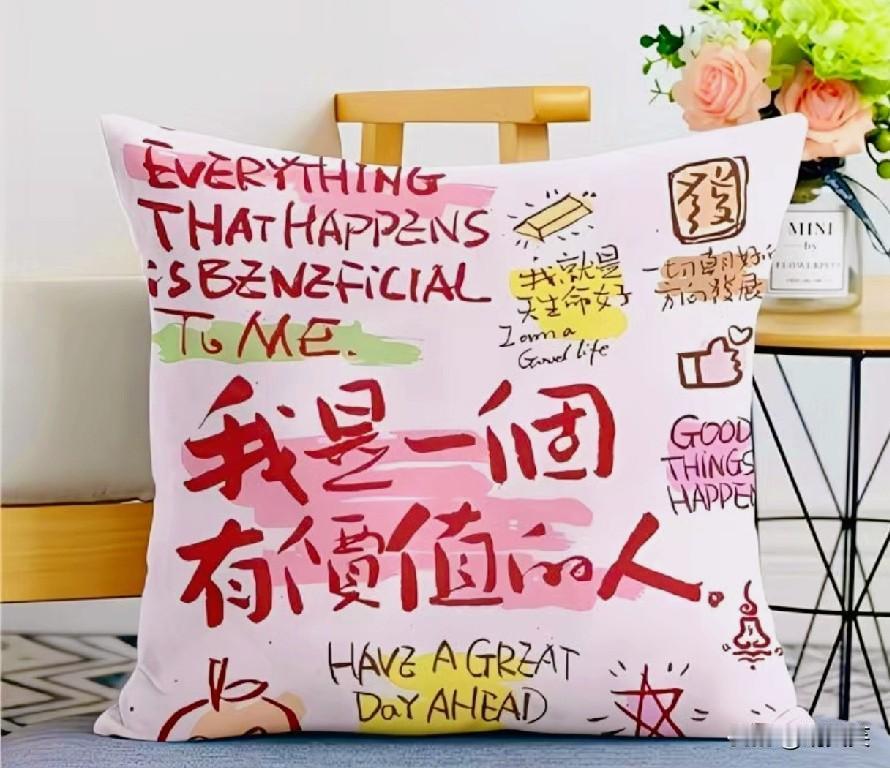 EVERYTHING
THAT HAPPENS
iS BENEFiCiAL
To ME.
發
我就是
天生命好
I am a
Good life
一切朝好的
方向發展
我是一個
有價值的人。
GOOD
THINGS
HAPPEN
HAVE A GREAT
DaY AHEAD
MINI
by
FLOWERPETS